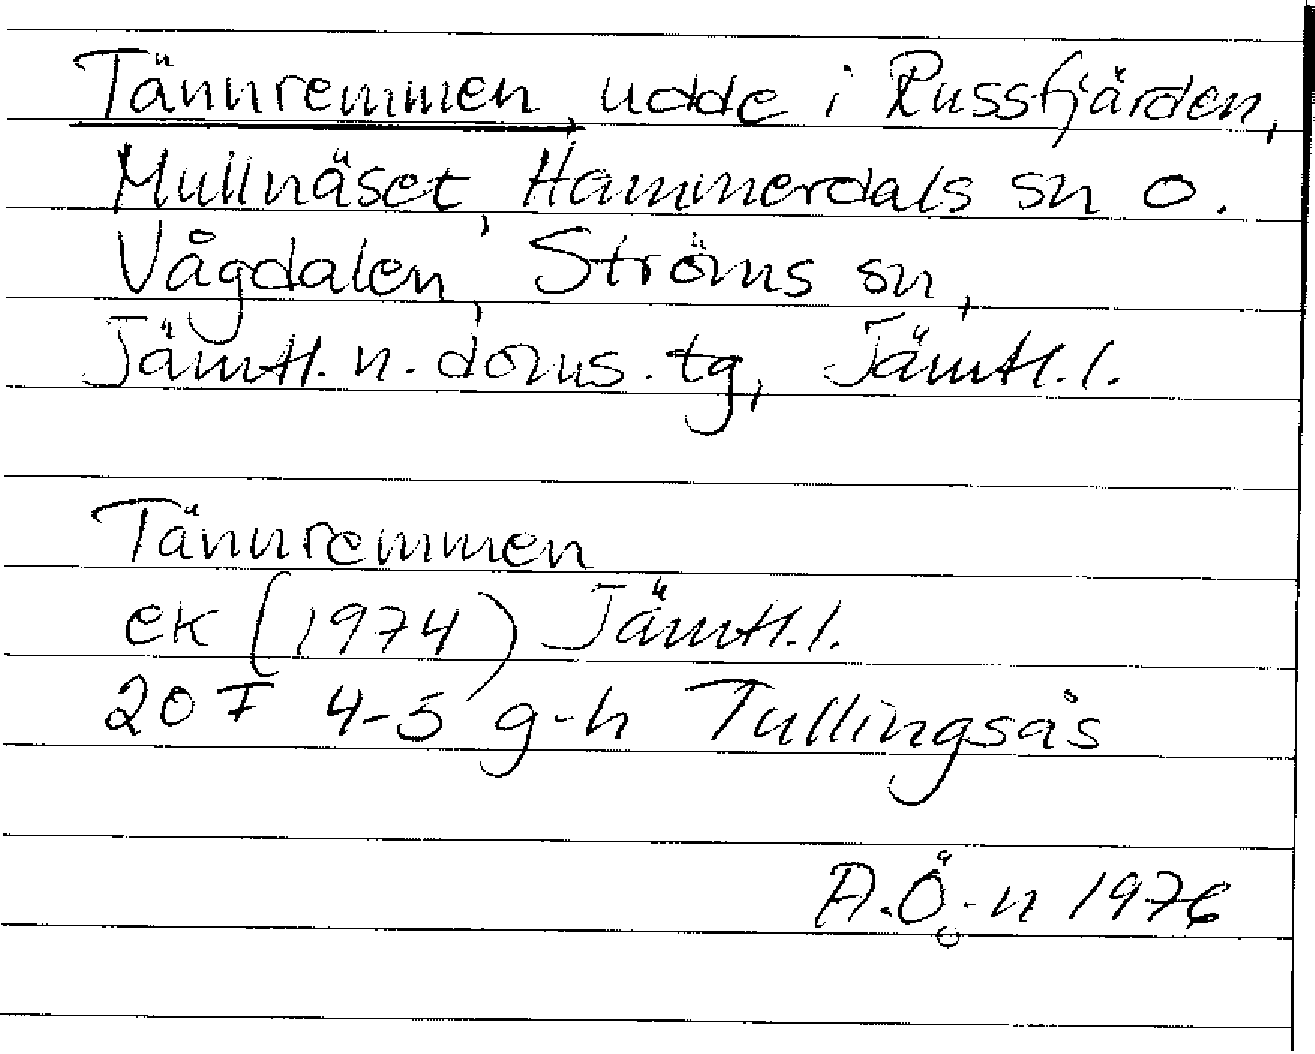 Tännremmen, udde i Russfjärden,
Mullnäset, Hammerdals sn o.
Vågdalen, Ströms sn,
Jämtl. n. doms. tg, Jämtl. l.
Tännremmen
ek (1974) Jämtl. l.
20 F 4-5 g-h Tullingsås
A.Ö-n 1976